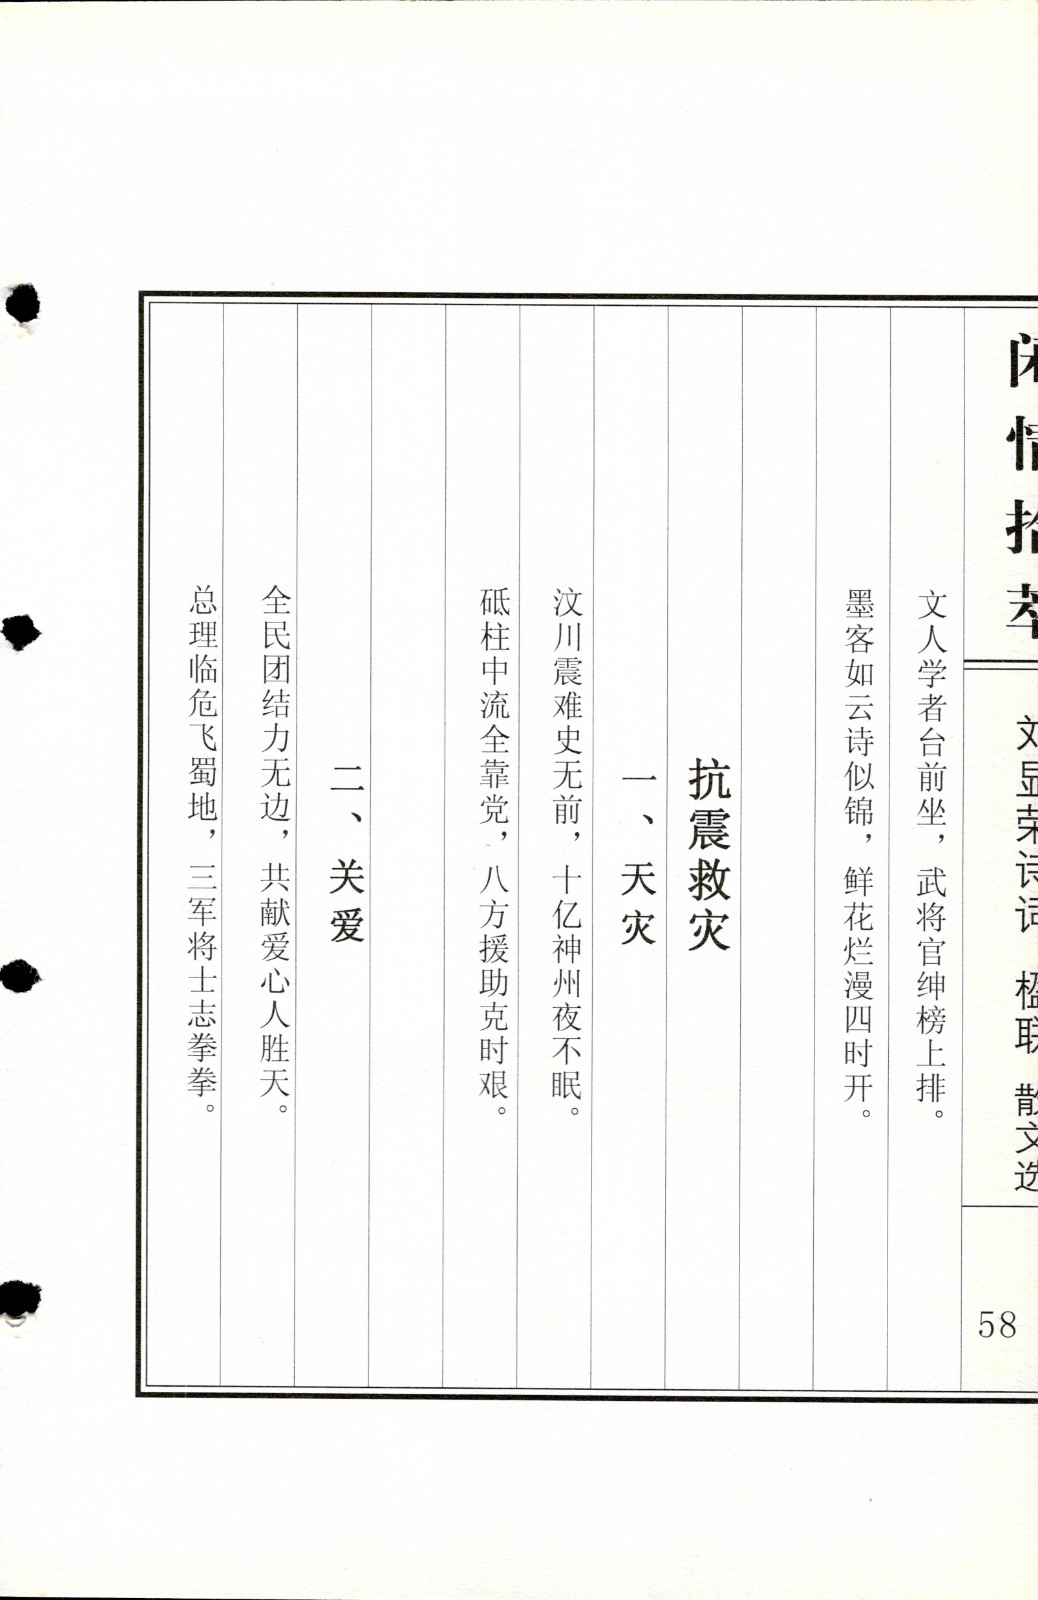 闲情拾萃
刘显荣诗词 楹联 散文选
58
文人学者台前坐，武将官绅榜上排。
墨客如云诗似锦，鲜花烂漫四时开。
抗震救灾
一、天灾
汶川震难史无前，十亿神州夜不眠。
砥柱中流全靠党，八方援助克时艰。
二、关爱
全民团结力无边，共献爱心人胜天。
总理临危飞蜀地，三军将士志拳拳。